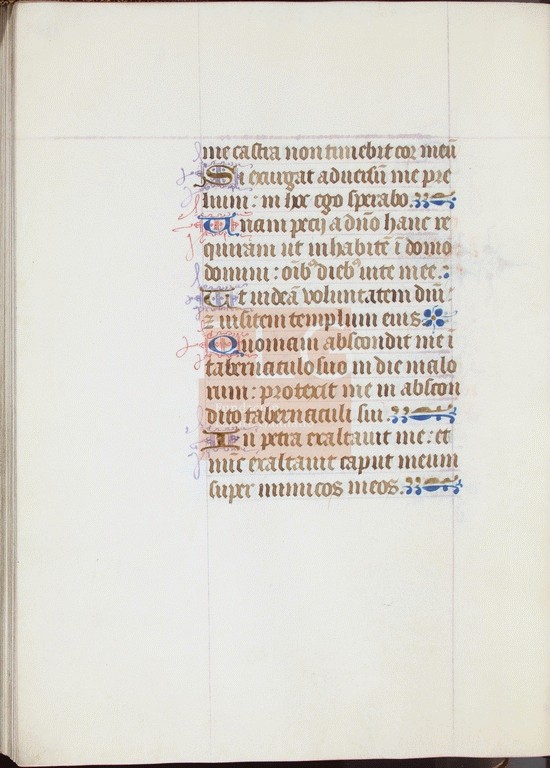 me castra non timebit cor meū
Si exurgat aduersū me pre
lium: in hoc ego sperabo.
Unam pecij a dn̄o hanc re
quiram ut inhabitē ī domo
domini: oīb⁹ dieb⁹ uite mee.
Ut uideā voluntatem dn̄i:
⁊ uisitem templum eius
Quoniam abscondit me ī
tabernaculo suo in die malo
rum: protexit me in abscon
dito tabernaculi sui.
In petra exaltauit me: et
nūc exaltauit caput meum
super inimicos meos.